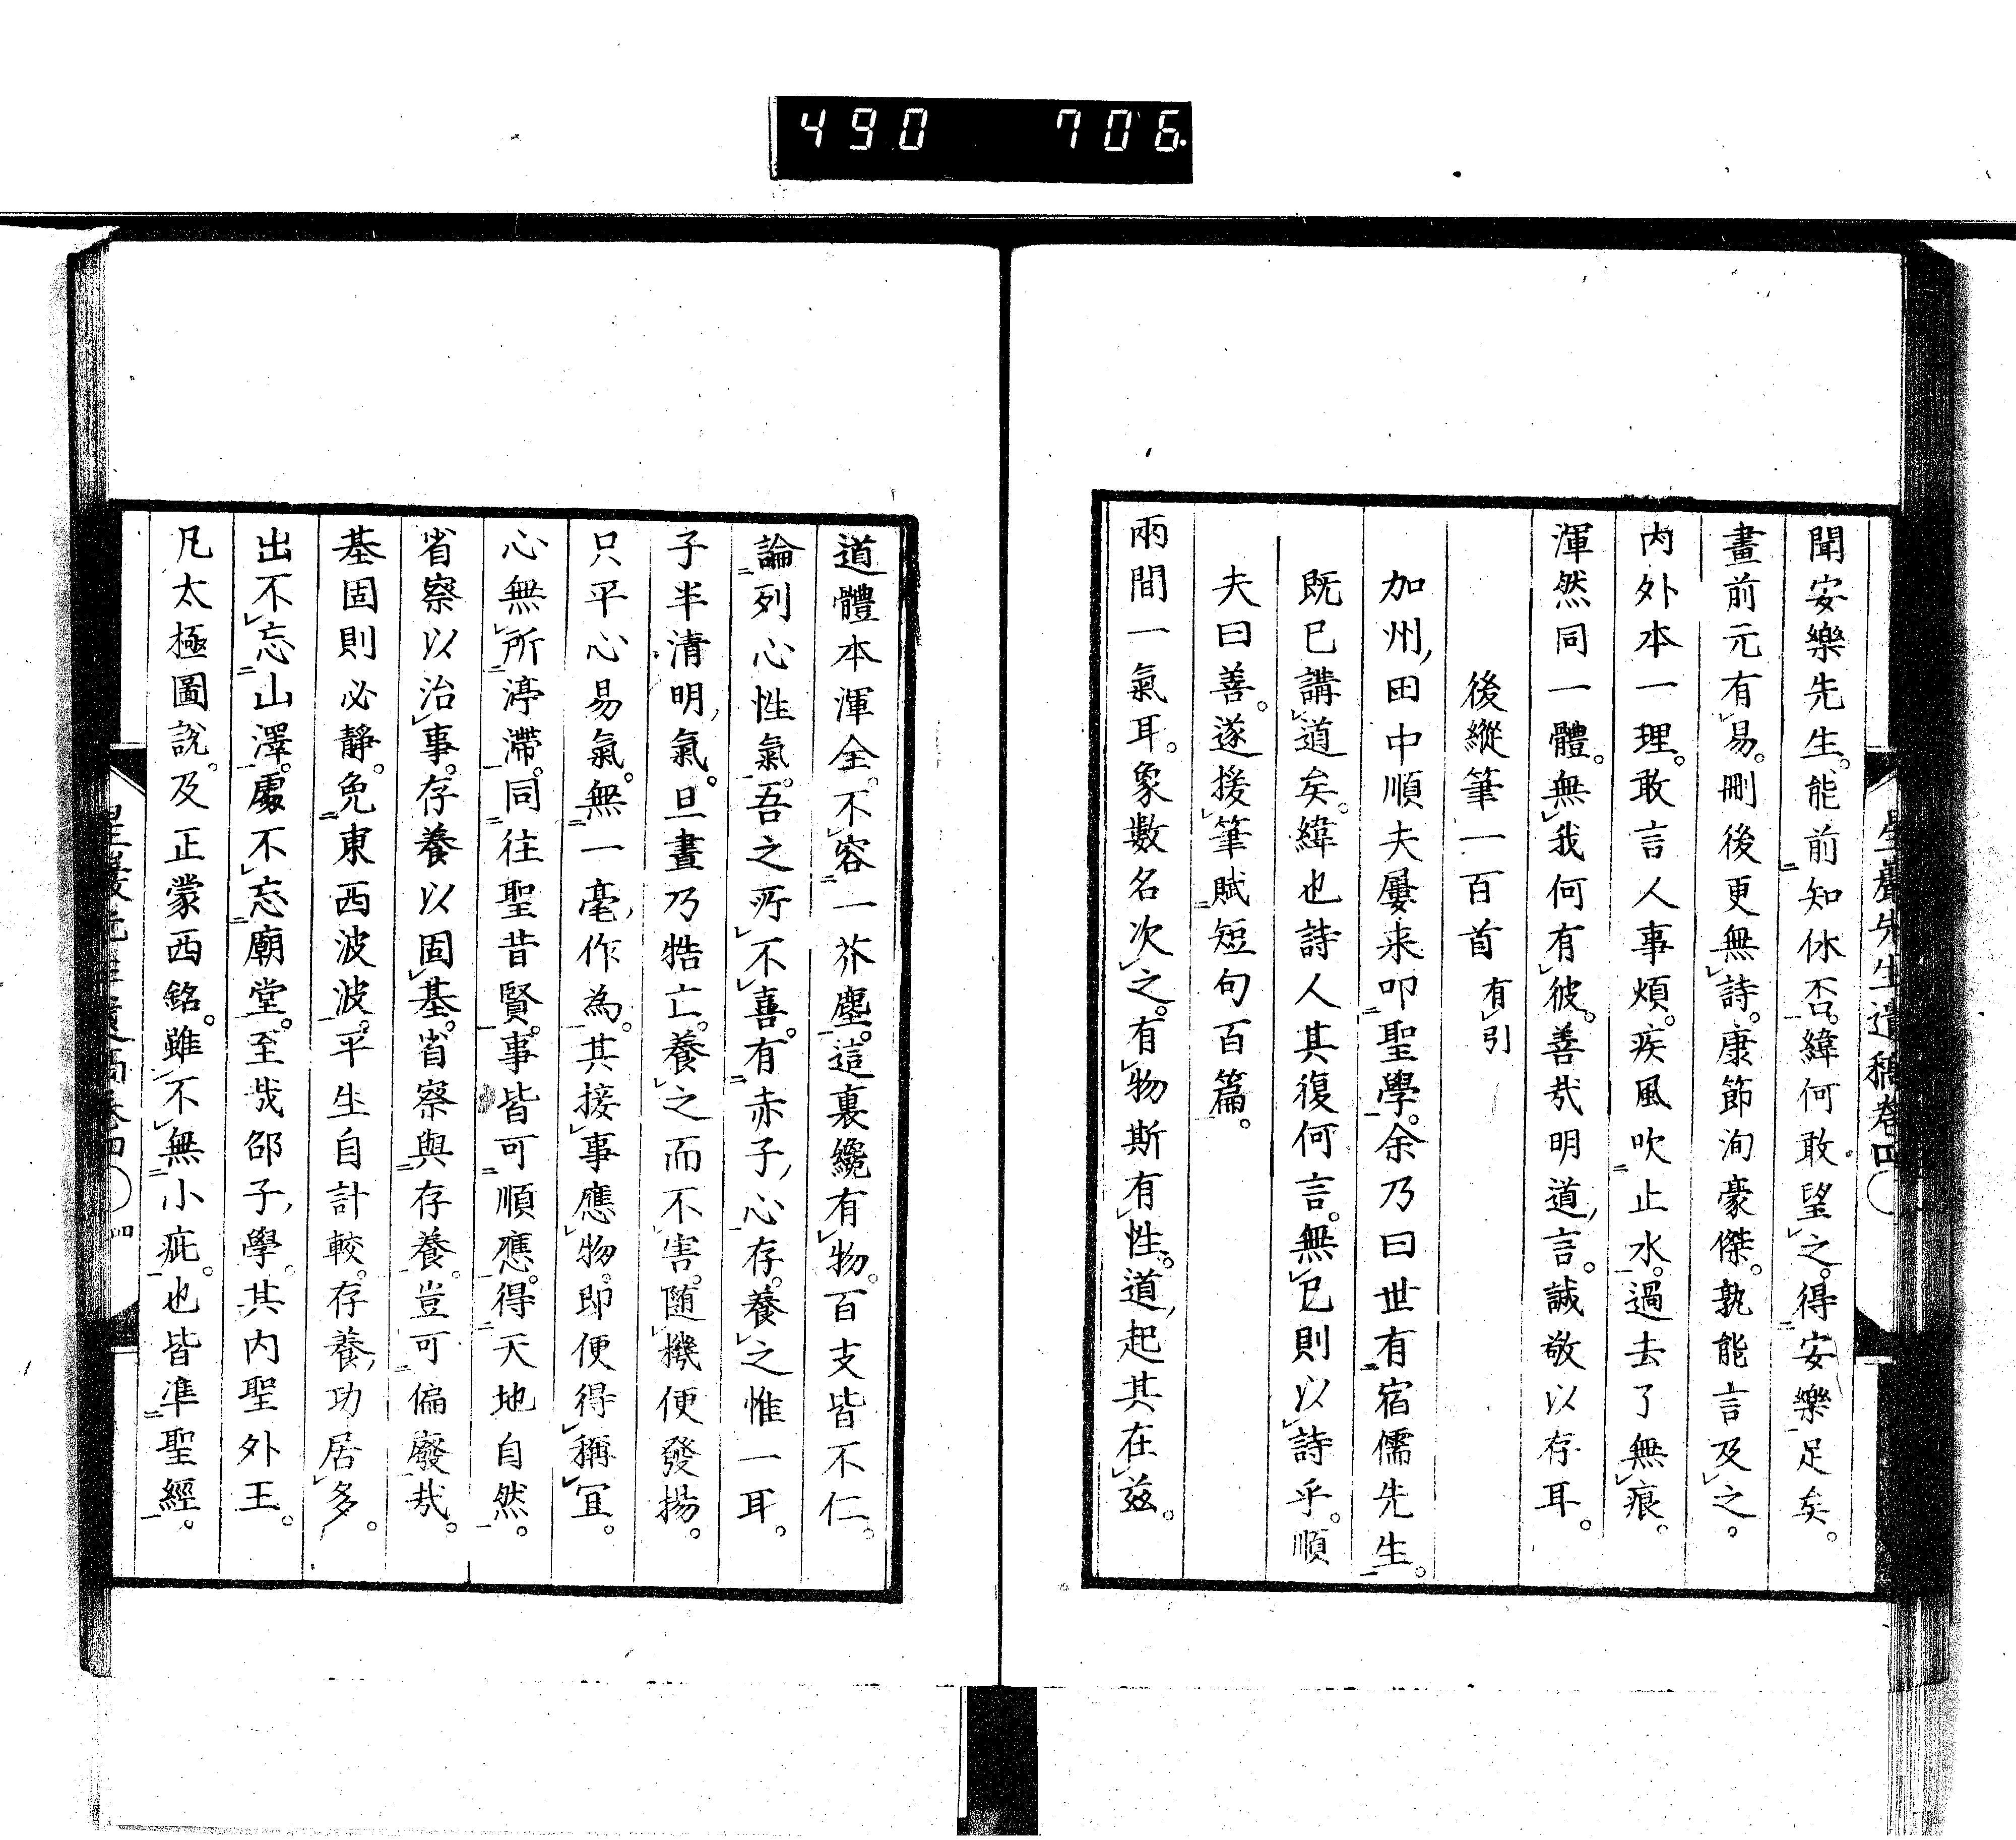 490 706
聞安樂先生。能前知休否。緯何敢望之。得安樂足矣。
畫前元有易。刪後更無詩。康節洵豪傑。孰能言及之。
内外本一理。敢言人事煩。疾風吹止水。過去了無痕。
渾然同一體。無我何有彼。善哉明道言。誠敬以存耳。
後縱筆一百首 有引
加州田中順夫屢来叩聖學。余乃曰世有宿儒先生。
既已講道矣。緯也詩人其復何言。無已則以詩乎。順
夫曰善。遂援筆賦短句百篇。
兩間一氣耳。象數名次之。有物斯有性。道起其在茲。
道體本渾全。不容一芥塵。這裏纔有物。百支皆不仁。
論列心性氣。吾之所不喜。有赤子心存。養之惟一耳。
子半清明氣。旦晝乃牿亡。養之而不害。随機便發揚。
只平心易氣。無一毫作為。其接事應物。即便得稱宜。
心無所渟滯。同往聖昔賢。事皆可順應。得天地自然。
省察以治事。存養以固基。省察與存養。豈可偏廢哉。
基固則必静。免東西波波。平生自計較。存養功居多。
出不忘山澤。處不忘廟堂。至哉邵子學。其内聖外王。
凡太極圖說。及正蒙西銘。雖不無小疵。也皆準聖經。